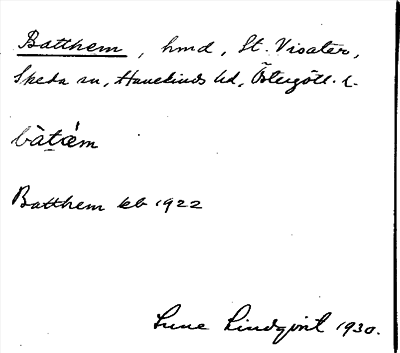 Batthem, hmd, St. Visätter,
Skeda sn, Hanekinds hd, Östergötl. l.
bàtǽm
Batthem kb 1922
Sune Lindqvist 1930.